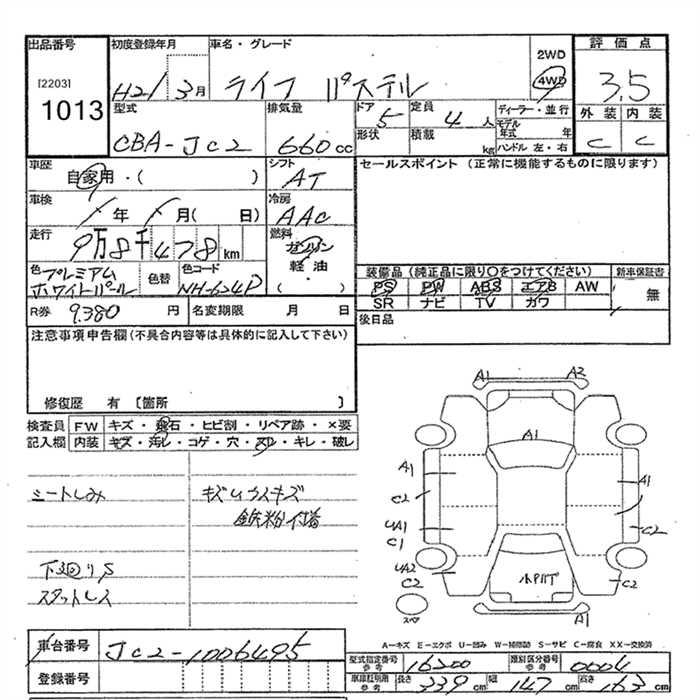 出品番号
[2203]
1013
初度登録年月
H21/3月
車名・グレード
ライフ パステル
2WD
4WD
評価点
3.5
外装 内装
C C
型式
CBA-JC2
排気量
660cc
ドア
5
定員
4人
ディーラー・並行
モデル年式 年
形状
積載 kg
ハンドル 左・右
車歴
自家用・( )
シフト
AT
セールスポイント (正常に機能するものに限ります)
車検
年 月( 日)
冷房
AAC
走行
9万8千478km
燃料
ガソリン
軽油
・( )
色
プレミアム
ホワイトパール
色替
色コード
NH-624P
装備品 (純正品に限り○をつけてください)
新車保証書
PS PW ABS エアB AW
SR ナビ TV カワ
無
R券 9,380 円
名変期限 月 日
後日品
注意事項申告欄(不具合内容等は具体的に記入して下さい)
修復歴 有 〔箇所 〕
検査員
記入欄
FW キズ・飛石・ヒビ割・リペア跡・×要
内装 キズ・汚レ・コゲ・穴・スリ・キレ・破レ
シートしみ
キズUコスキズ
鉄粉付着
下廻りS
スタットレス
A1 A2
A1
A1 A1
C2
UA1 C2
C1
UA2
C2 C2
小PUP
A1
スペア
A=キズ E=エクボ U=凹み W=補修跡 S=サビ C=腐食 XX=交換済
車台番号
JC2-1006495
登録番号
型式指定番号
参考
16200
類別区分番号
参考
0004
車庫証明用
参考
長さ 339cm 幅 147cm 高さ 163cm